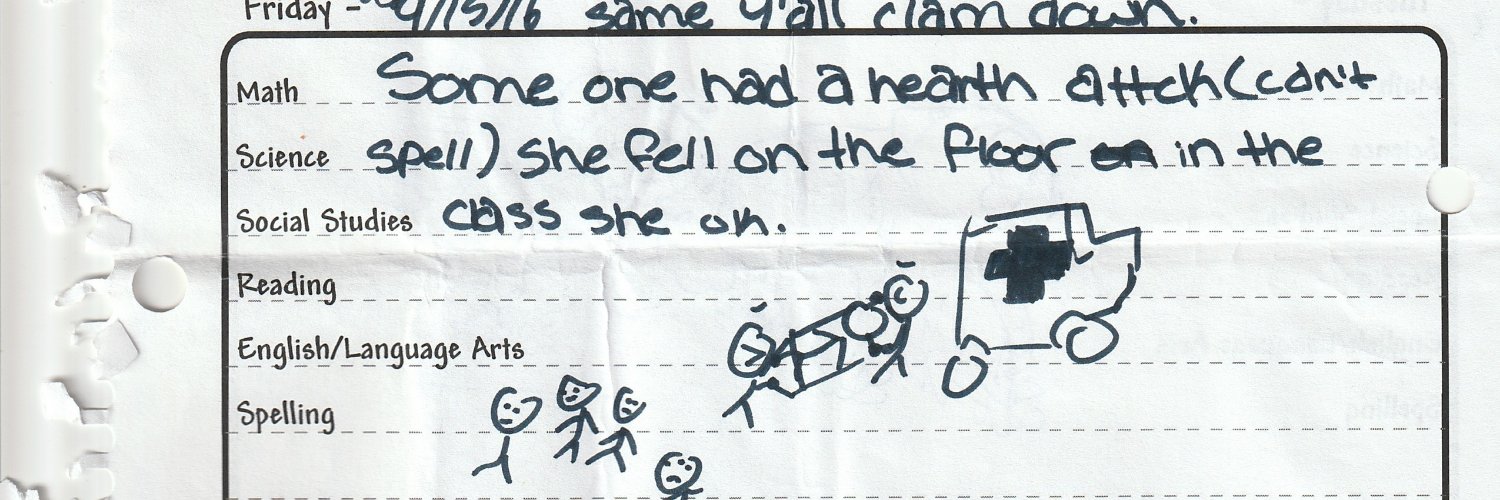 Friday - 9/15/16 same y'all clam down.
Math Some one had a hearth attck (can't
Science spell) she fell on the floor in the
Social Studies class she ok.
Reading
English/Language Arts
Spelling